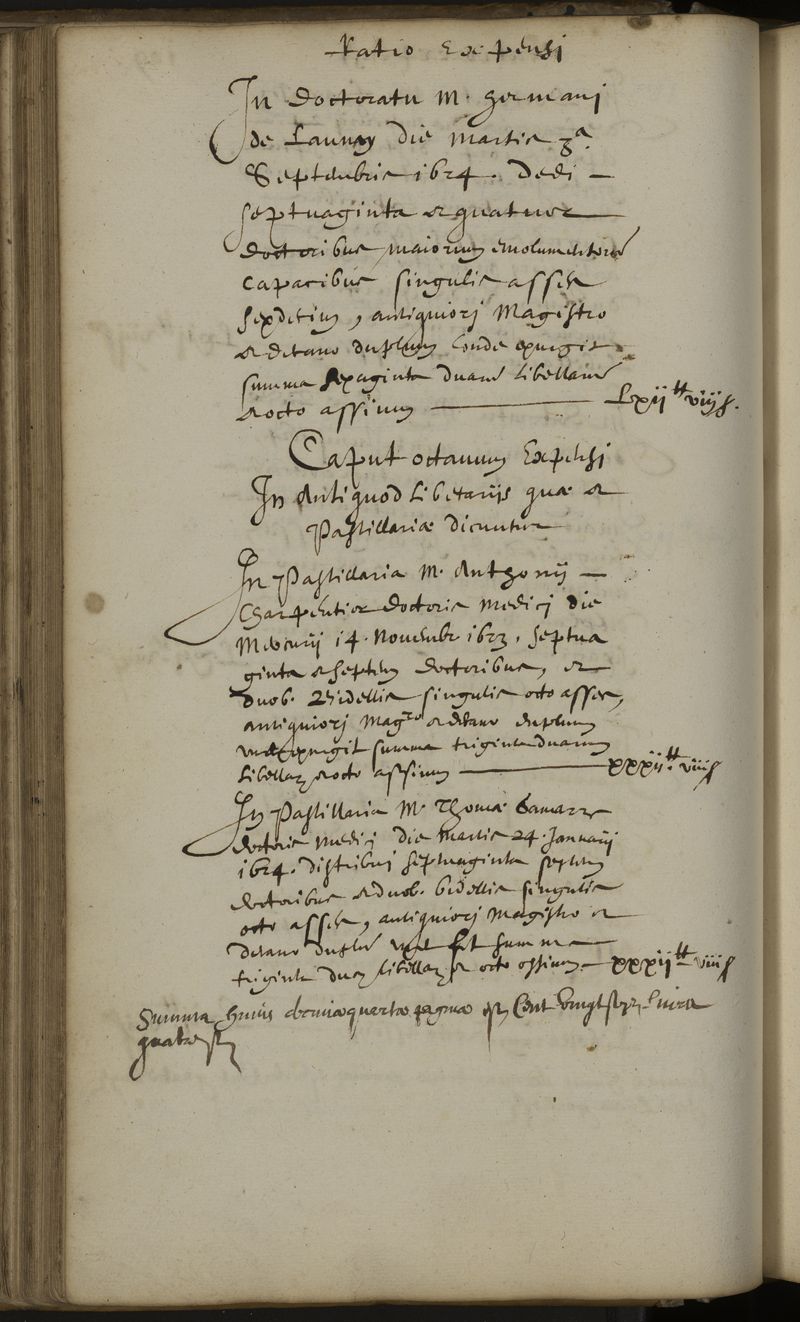 Ratio Expensi
In doctoratu M. Germani
de Launay die Martis 3ª.
Septembris 1624. Dedi —
septuaginta et quatuor
doctoribus maiorum emolumentorū
capacibus singulis asses
sexdecim, antiquiori Magistro
et decano duplum Unde exurgit
summa sexaginta duarū libellarū
et octo assium — Lxij ₶ viij s.
Caput octavum Expensi
In Antiquodlibetarijs quæ et
Pastillariæ dicuntur
In Pastillaria M. Anthonij —
Charpentier doctoris medici die
Mercurij 14. Novembr. 1623. septua
ginta et septem doctoribus, et
duob. Bidellis singulis octo asses,
antiquiori Magro et decano duplum
unde exurgit summa triginta duarum
libellar. et octo assium — xxxij ₶ viij s
In Pastillaria M. Thomæ Gamare
doctoris medici die Martis 24. Januarij
1624. distribui septuaginta septem
doctoribus et duob. bidellis singulis
octo asses, antiquiori Magistro et
decano duplū unde fit summa
triginta duar. libellar. et octo assium. — xxxij ₶ viij s
Summa huius paginæ est Cent vingt sept livres
quatre s.